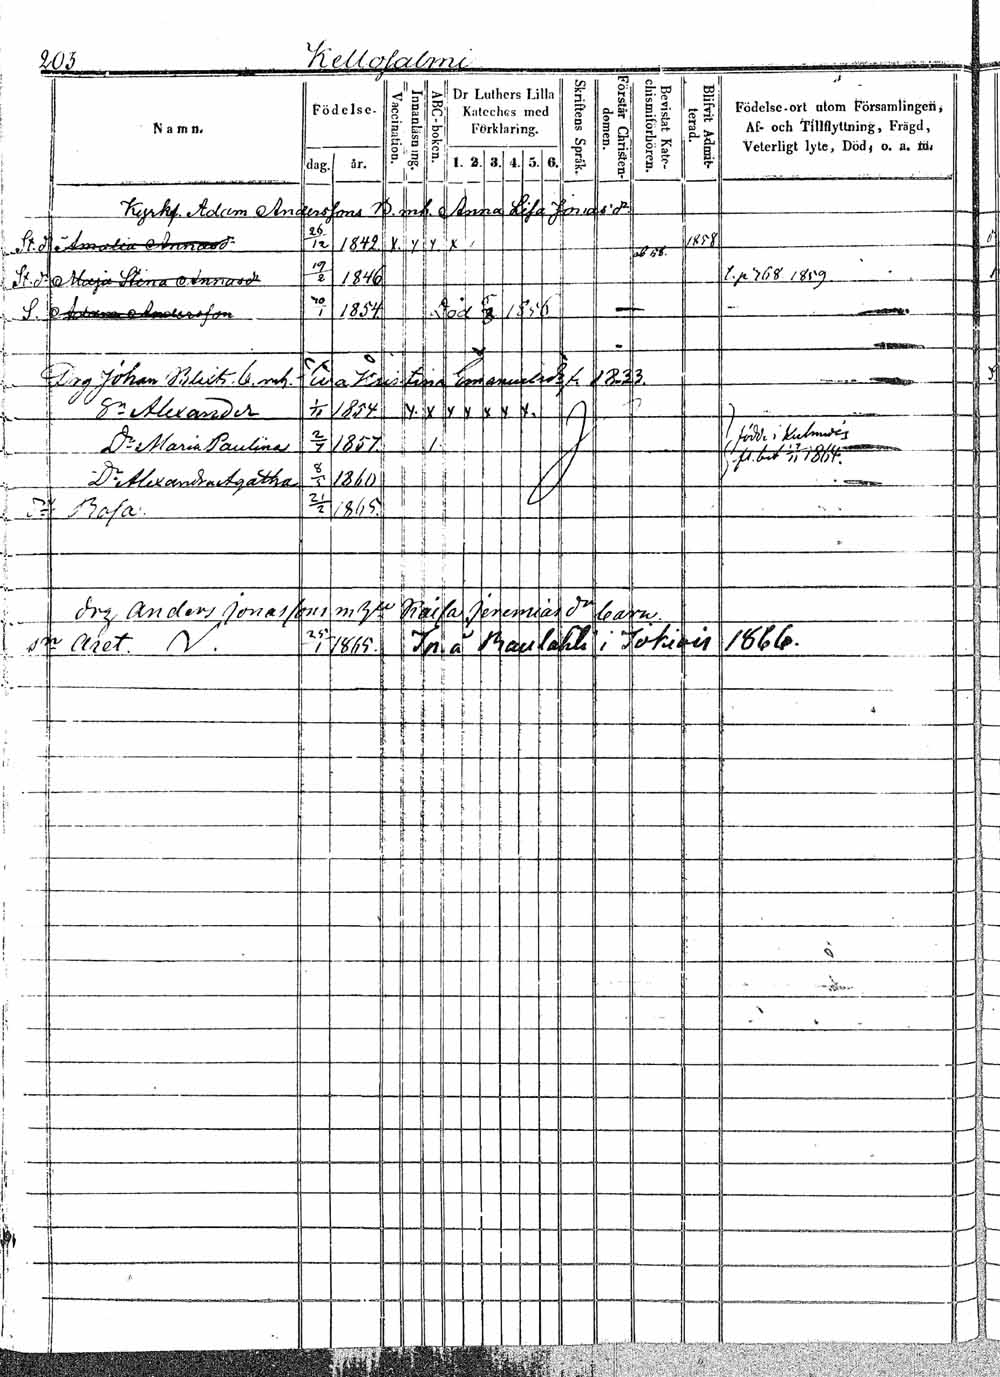 203 Kellosalmi
Namn.
Födelse-
dag. år.
Vaccination.
Innanläsning.
ABC-boken.
Dr Luthers Lilla
Kateches med
Förklaring.
1. 2. 3. 4. 5. 6.
Skriftens Språk.
Förstår Christen-
domen.
Bevistat Kate-
chismiförhören.
Blifvit Admit-
terad.
Födelse-ort utom Församlingen,
Af- och Tillflyttning, Frägd,
Veterligt lyte, Död, o. a. m.
Adam Anderssons mh. Anna Lisa Jonas dr
St.dr Amalia Annasdr 26/12 1842 x y y x 1858
St.dr Maja Stina Annasdr 19/2 1846 1859
S. Adam Andersson 1854 Död 1856
Drg Johan mh. Eva Kristina Emanuelsdr f. 1833.
Sn Alexander 1/11 1854 x x x x x x x
Dr Maria Paulina 2/7 1857 1.
födde i
1864.
Dr Alexandra Agatha 8/5 1860
Dr Rosa. 21/2 1865.
drg Anders Jonassons Kaisa Jeremias dr barn.
sn Aret. V. 25/1 1865. In. å i Jokiois 1866.